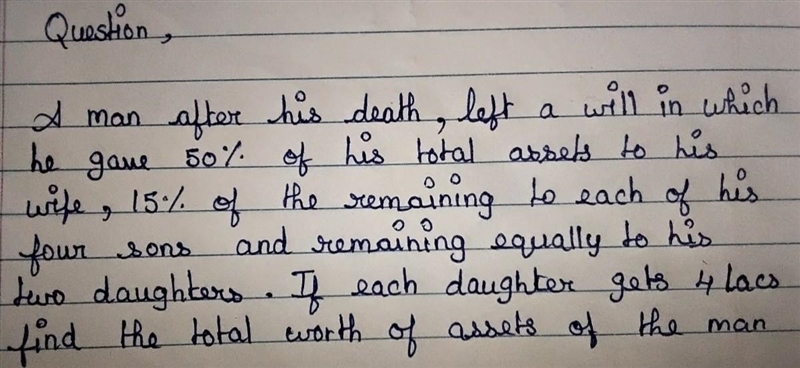 Question,
A man after his death, left a will in which
he gave 50% of his total assets to his
wife, 15% of the remaining to each of his
four sons and remaining equally to his
two daughters. If each daughter gets 4 lacs
find the total worth of assets of the man